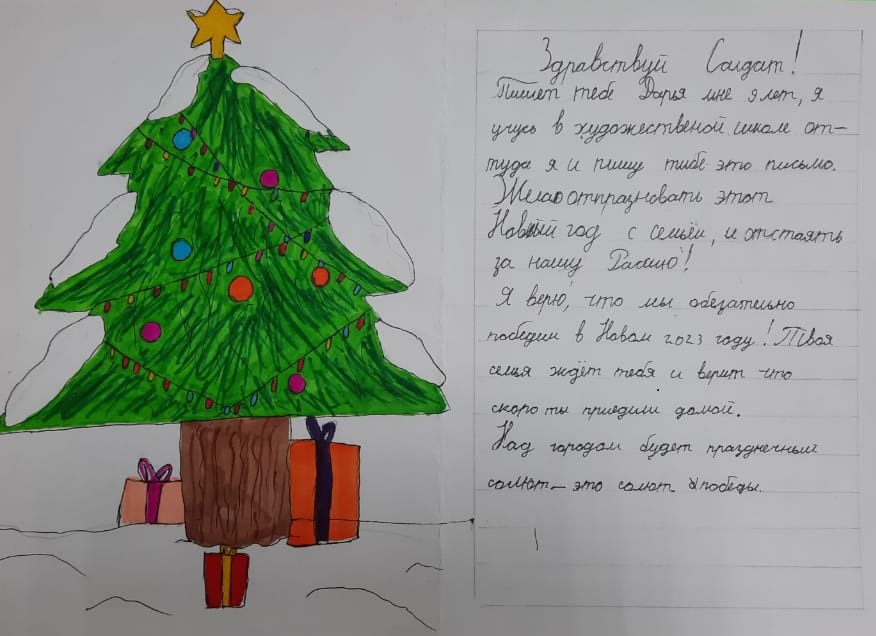 Здравствуй Солдат!
Пишет тебе Дарья мне 9 лет, я
учусь в художественой школе от-
туда я и пишу тибе это письмо.
Желаю отпразновать этот
Новый год с семьёй, и отстаять
за нашу Рассию!
Я верю, что мы обезательно
победим в Новом 2023 году! Твоя
семья ждёт тебя и верит что
скоро ты приедиш домой.
Над городом будет празднечный
солют – это солют победы.